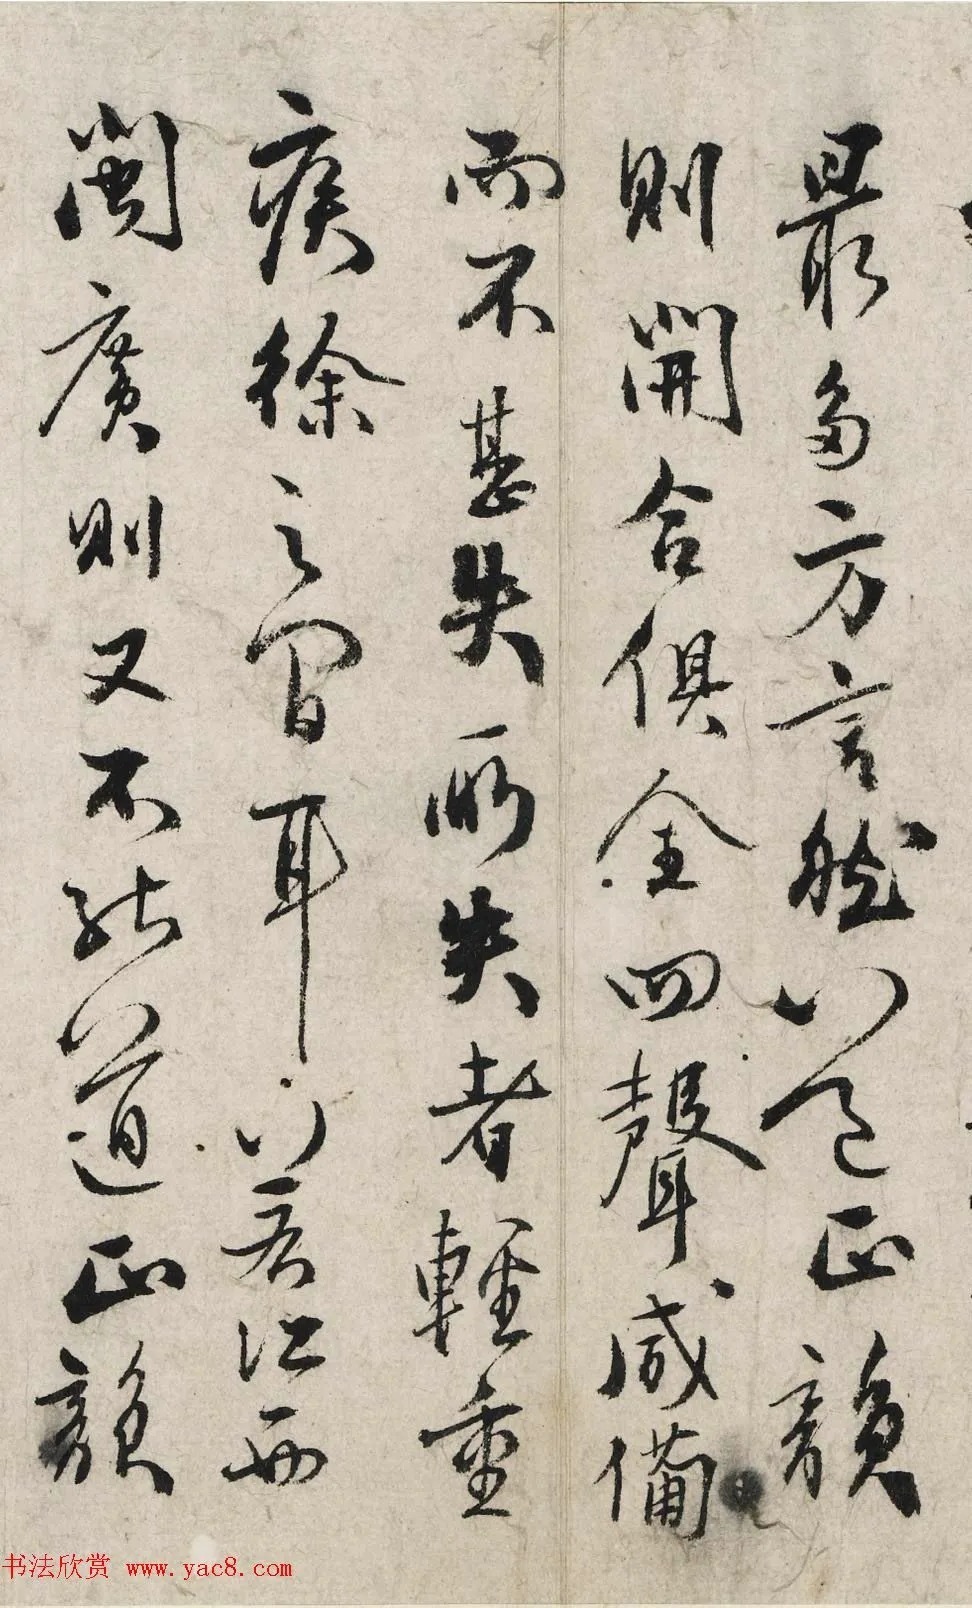 最多方言然以之正韻
則開合俱全四聲咸備
而不甚失所失者輕重
疾徐之間耳以若江西
閩廣則又不能以道正韻
书法欣赏 www.yac8.com